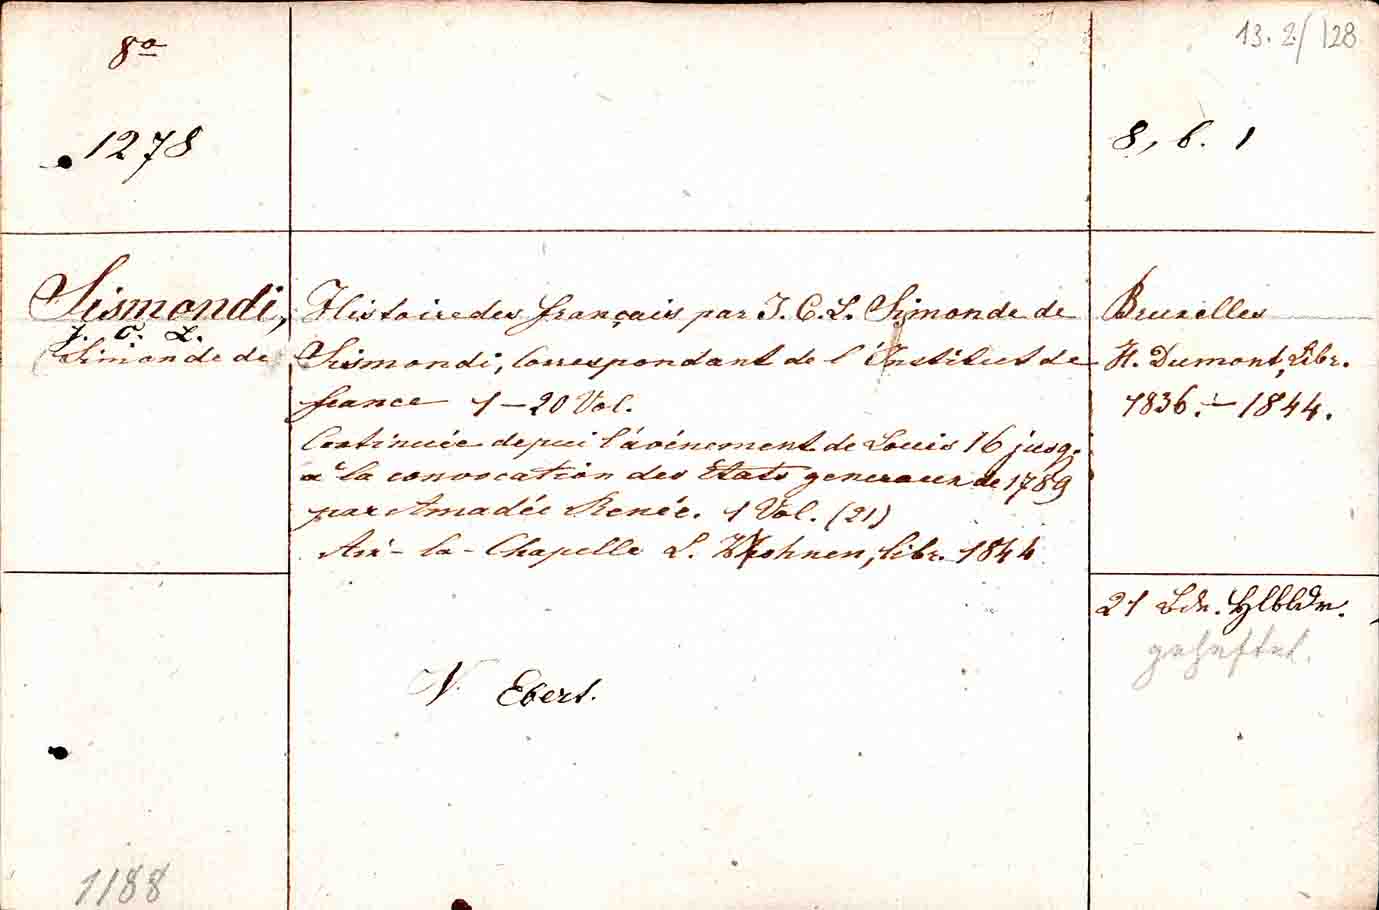 8º
13. 2/128
1278
8, 6. 1
Sismondi,
J. C. L.
Simonde de
Histoire des français par J. C. L. Simonde de
Sismondi, Correspondant de l'Institut de
france 1–20 Vol.
Continuée depui l'avénement de Louis 16 jusq.
a la convocation des Etats generaux de 1789
par Amadée Renée. 1 Vol. (21)
Aix-la-Chapelle L. Kohnen, libr. 1844
Bruxelles
H. Dumont, Libr.
1836. – 1844.
21 Bde. Hlbldr.
geheftet.
N. Ebert.
1188